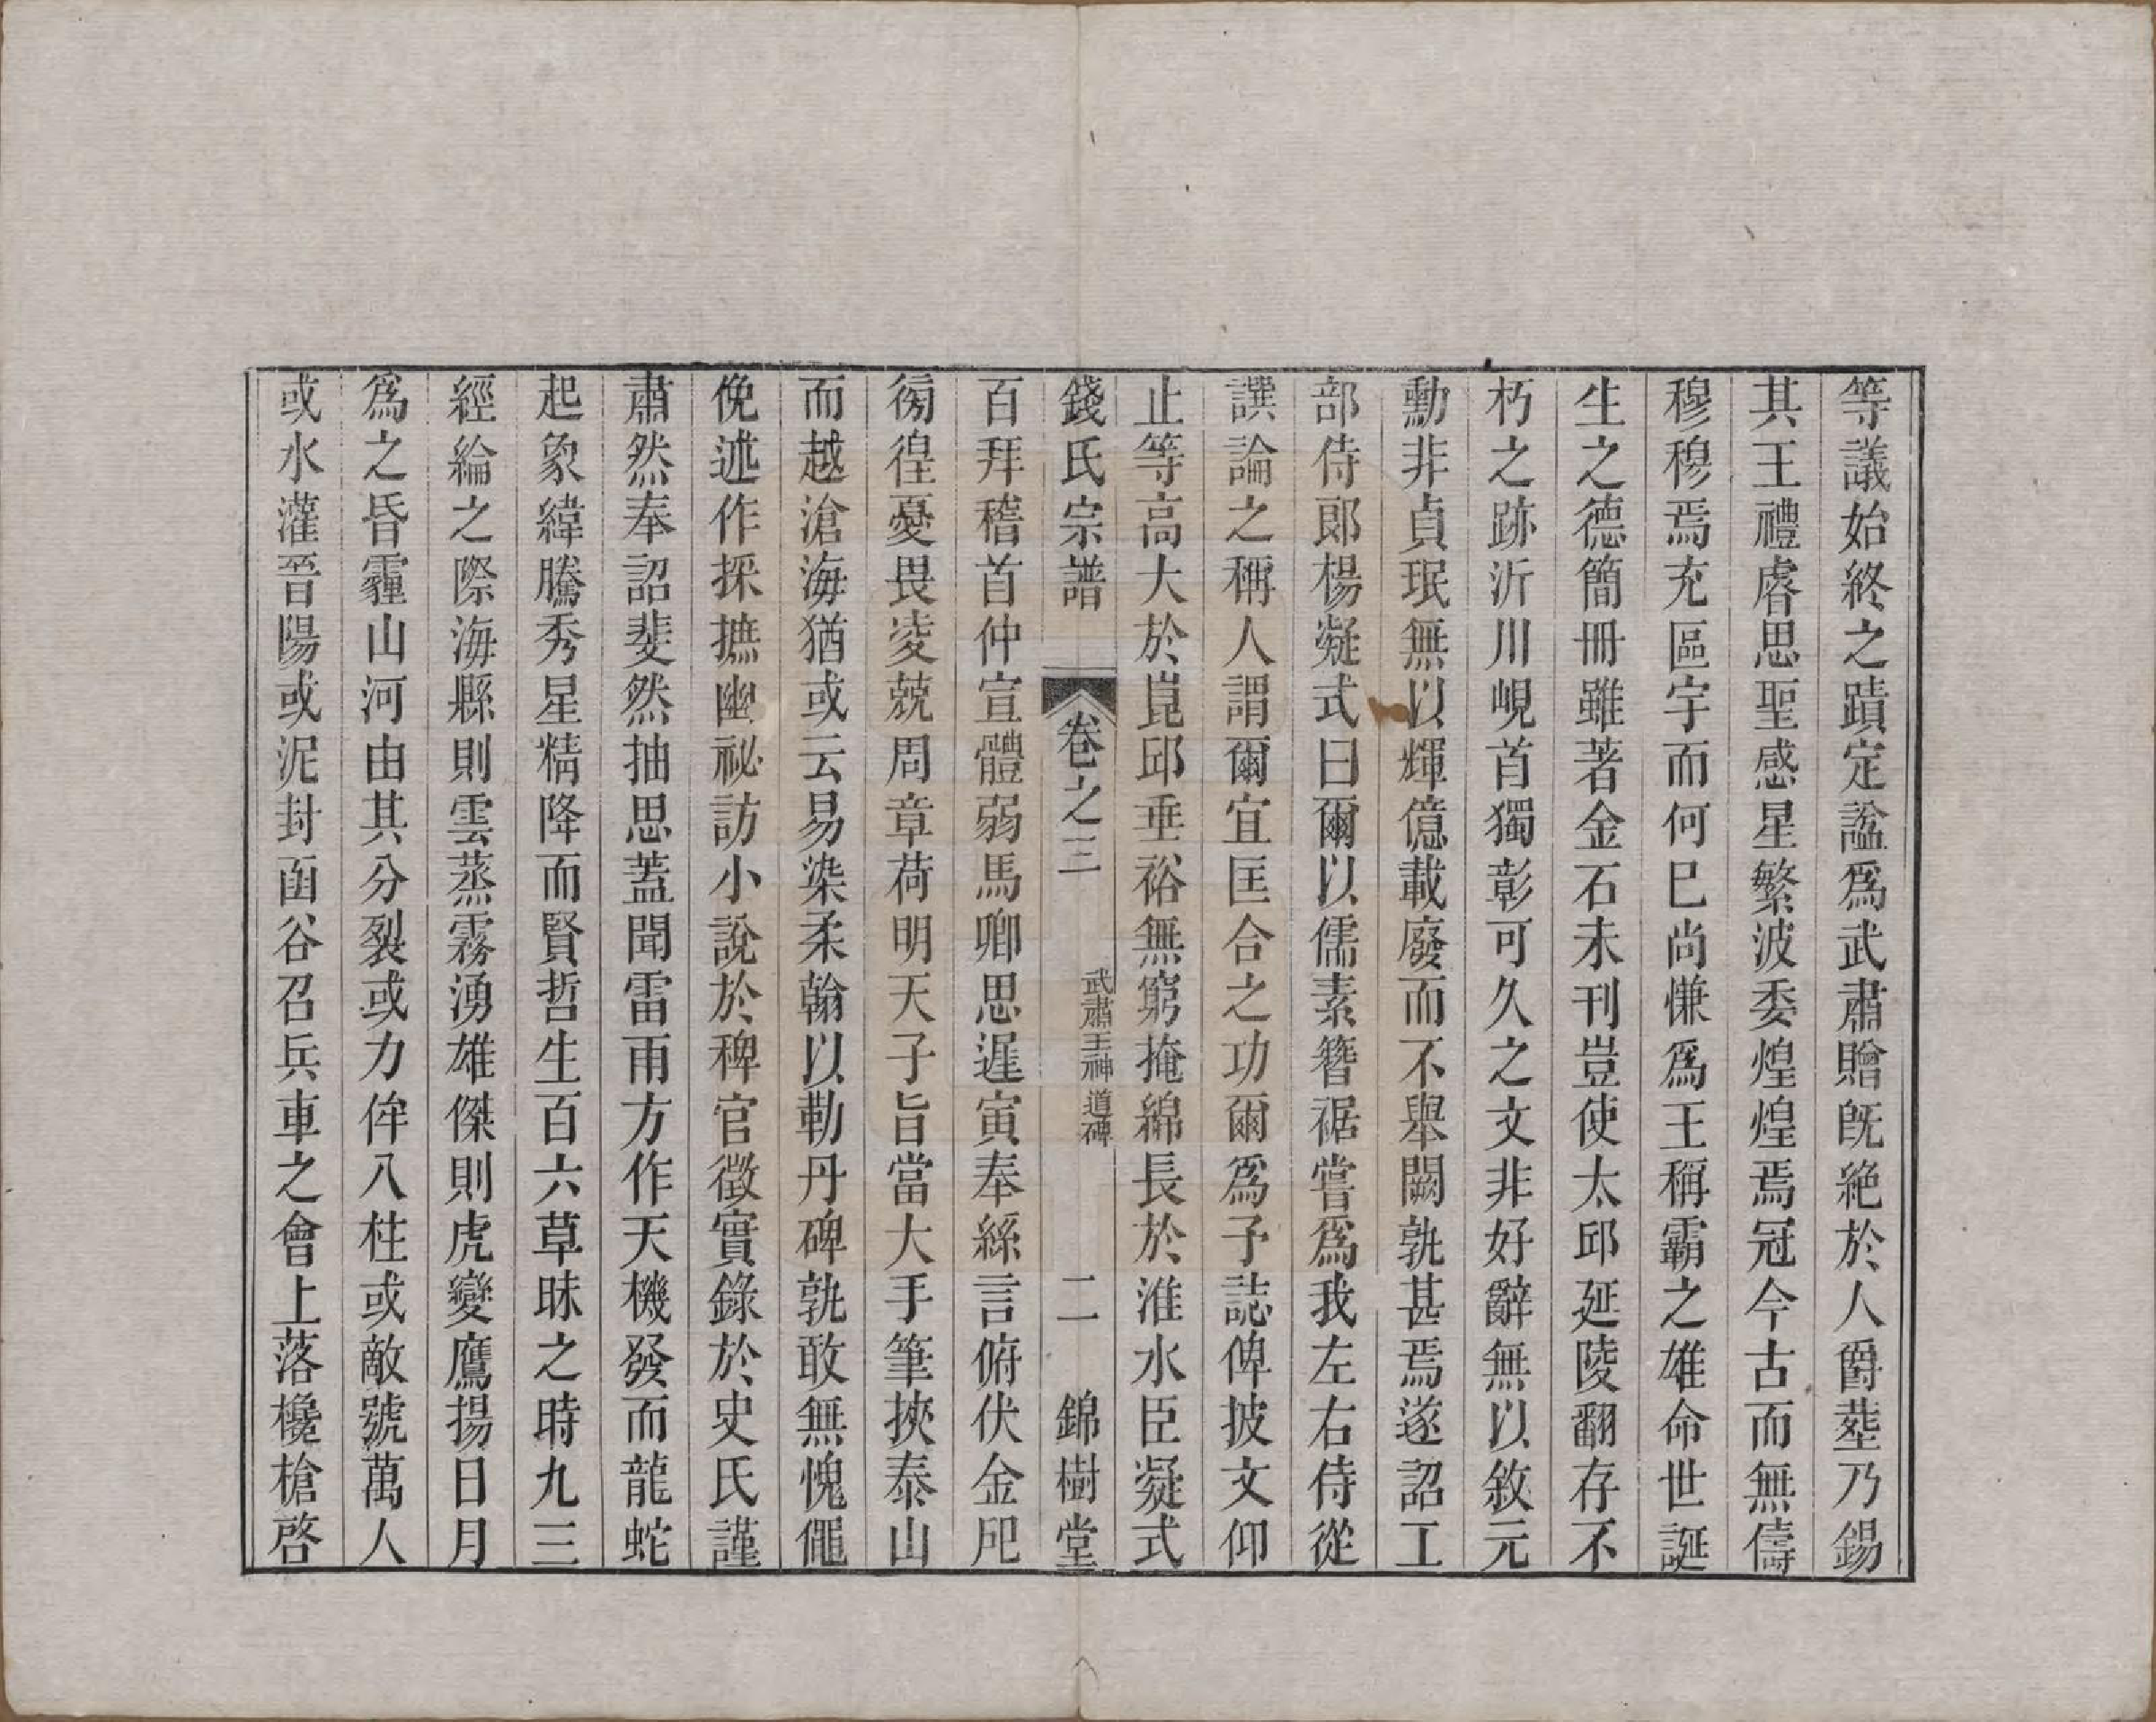 等議始終之蹟定諡爲武肅贈旣絶於人爵塟乃錫
其王禮睿思聖感星繁波委煌煌焉冠今古而無儔
穆穆焉充區宇而何巳尚慊爲王稱霸之雄命世誕
生之德簡冊雖著金石未刊豈使太邱延陵翻存不
朽之跡沂川峴首獨彰可久之文非好辭無以敘元
勳非貞珉無以輝億載廢而不舉闕孰甚焉遂詔工
部侍郎楊凝式曰爾以儒素簪裾嘗爲我左右侍從
譔論之稱人謂爾宜匡合之功爾爲予誌俾披文仰
止等高大於崑邱垂裕無窮掩綿長於淮水臣凝式
錢氏宗譜 卷之三 武肅王神道碑 二 錦樹堂
百拜稽首仲宣體弱馬卿思遲寅奉絲言俯伏金戺
徬徨憂畏凌兢周章荷明天子旨當大手筆挾泰山
而越滄海猶或云易染柔翰以勒丹碑孰敢無愧僶
俛述作採摭幽祕訪小說於稗官徵實錄於史氏謹
肅然奉詔斐然抽思蓋聞雷雨方作天機發而龍蛇
起象緯騰秀星精降而賢哲生百六草昧之時九三
經綸之際海縣則雲蒸霧湧雄傑則虎變鷹揚日月
爲之昏霾山河由其分裂或力侔八柱或敵號萬人
或水灌晉陽或泥封函谷召兵車之會上落欃槍啓